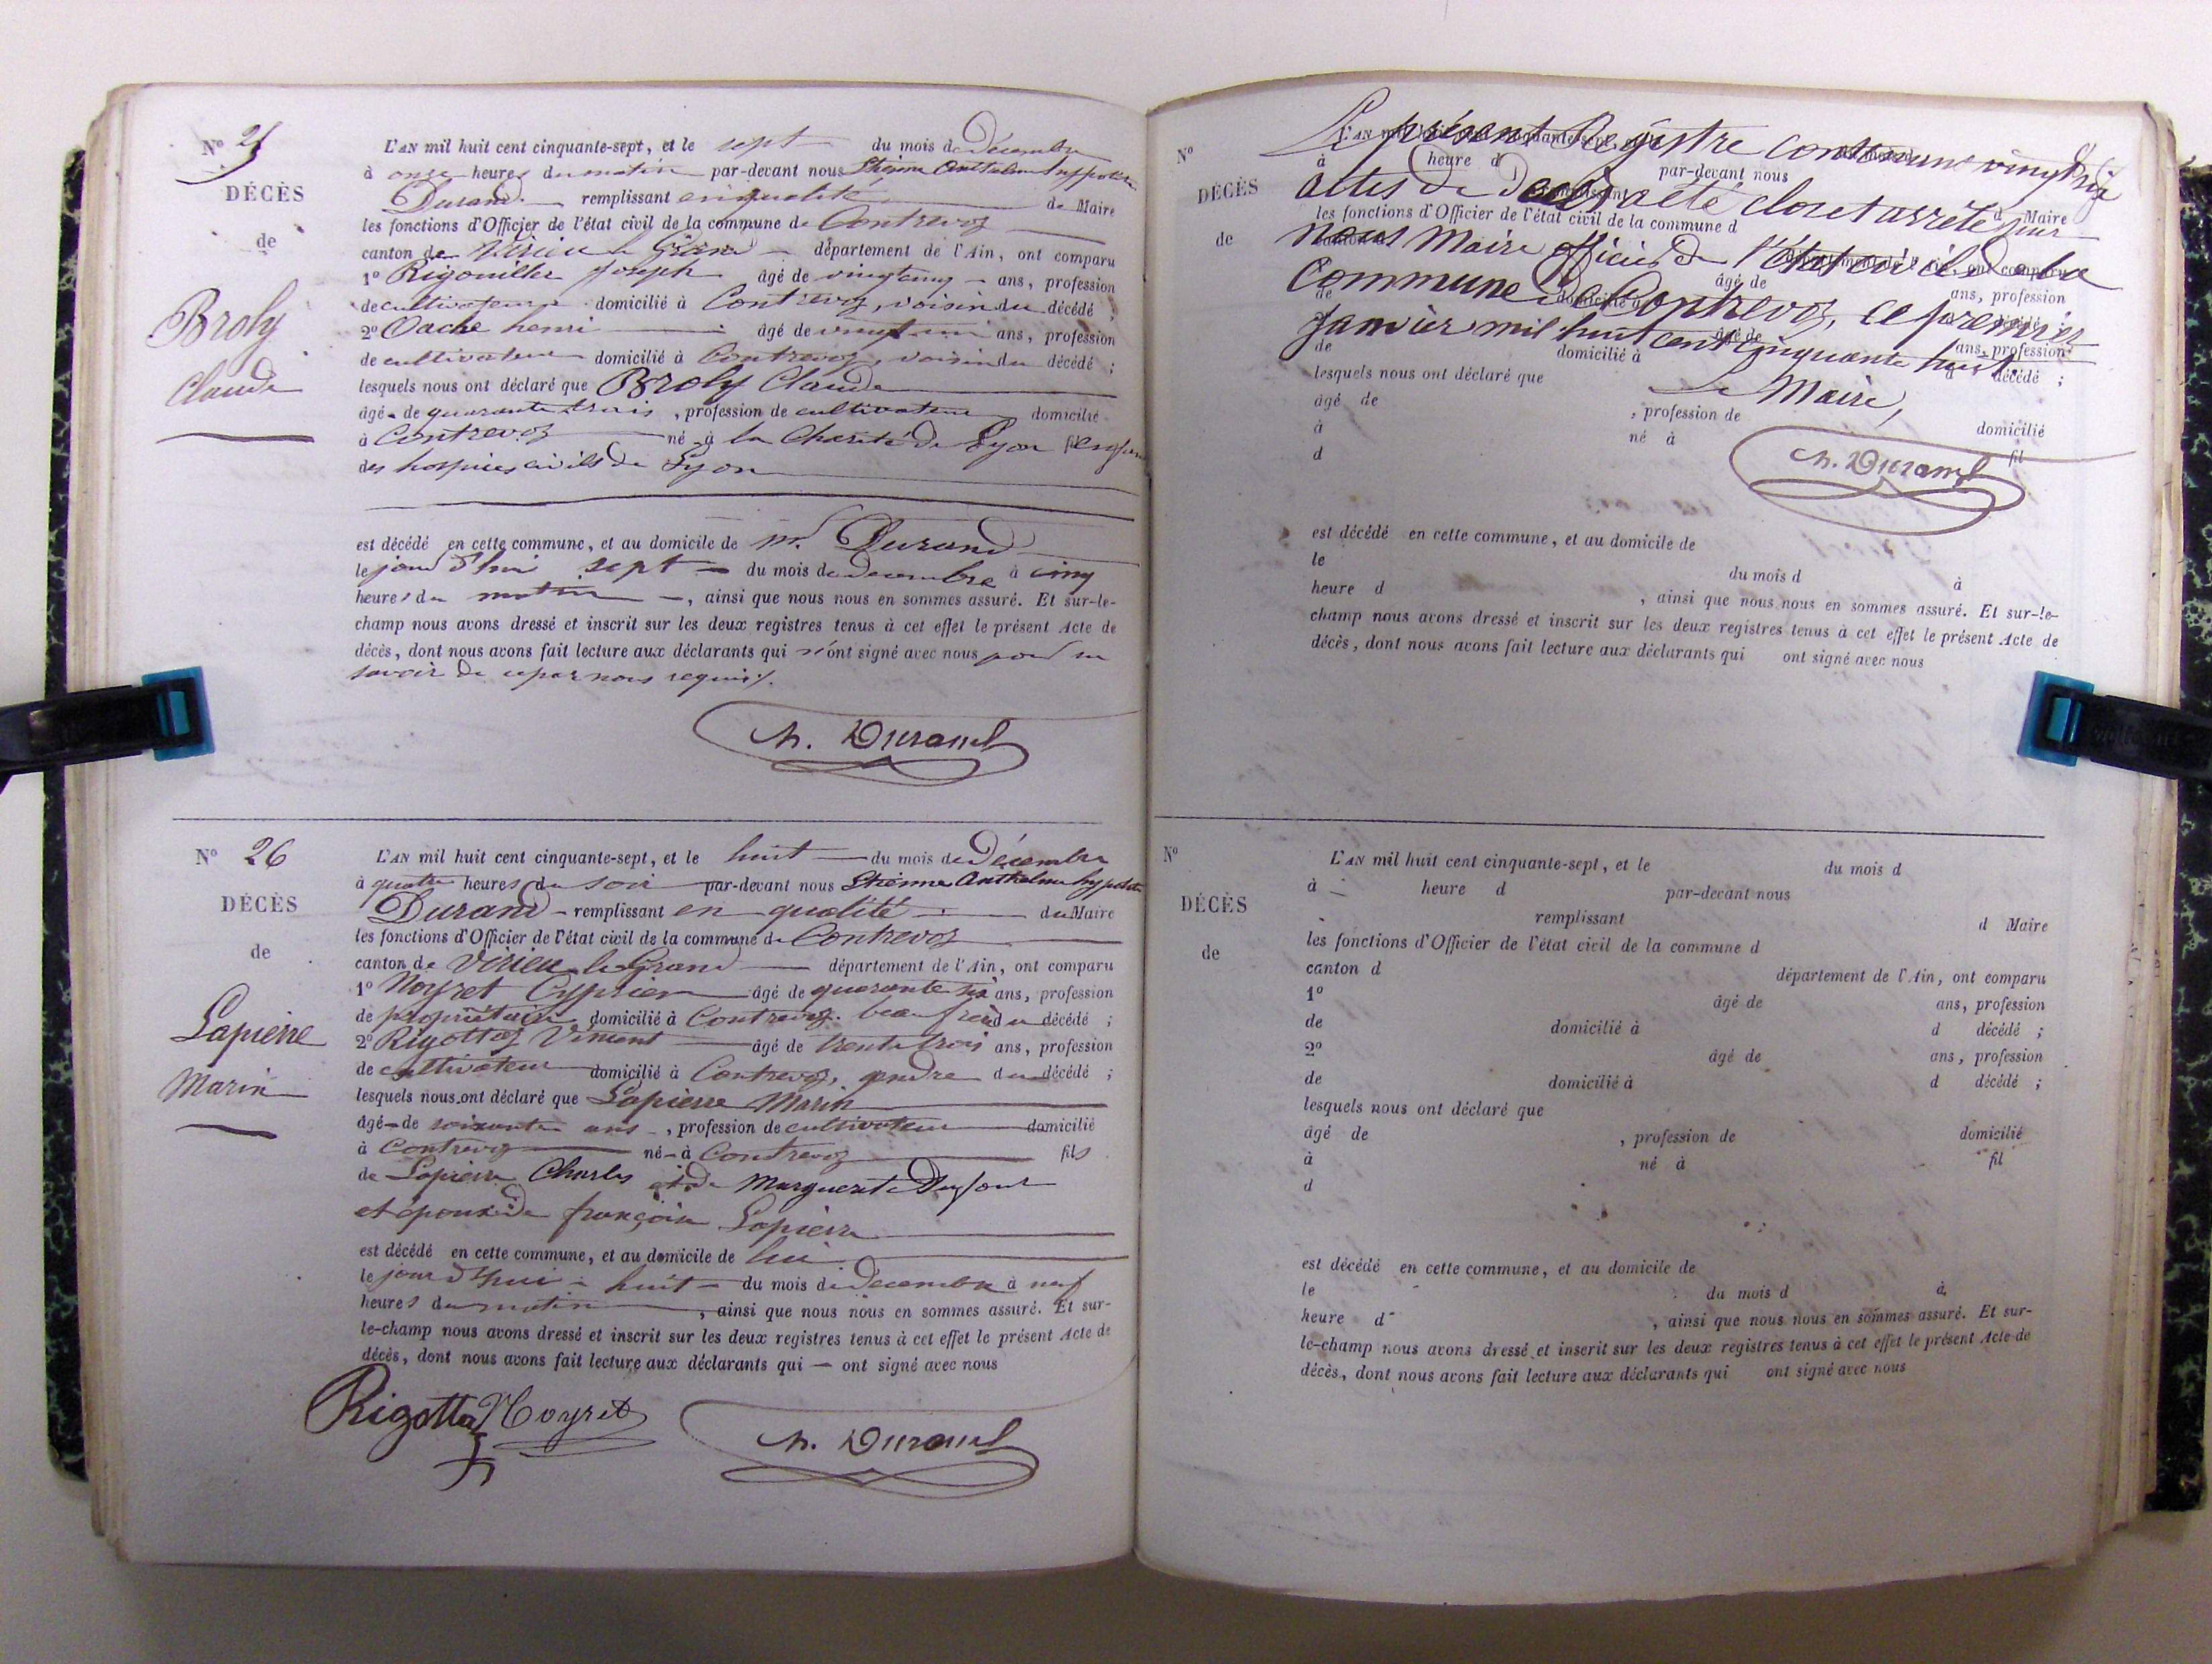 N° 25
DÉCÈS
de
Broly
Claude
L'AN mil huit cent cinquante-sept, et le sept du mois de Décembre
à onze heures du matin par-devant nous Etienne Anthelme hyppolite
Durand remplissant en qualité de Maire
les fonctions d'Officier de l'état civil de la commune de Contrevoz
canton de Virieu le Grand département de l'Ain, ont comparu
1° Rigouiller Joseph âgé de vingt cinq ans, profession
de cultivateur domicilié à Contrevoz, voisin du décédé ;
2° Cache henri âgé de vingt un ans, profession
de cultivateur domicilié à Contrevoz, voisin du décédé ;
lesquels nous ont déclaré que Broly Claude
âgé de quarante trois, profession de cultivateur domicilié
à Contrevoz né à la Charité de Lyon fil enfant
des hospices civils de Lyon
est décédé en cette commune, et au domicile de mr. Durand
le jourd'hui sept du mois de decembre à cinq
heures du matin, ainsi que nous nous en sommes assuré. Et sur-le-
champ nous avons dressé et inscrit sur les deux registres tenus à cet effet le présent Acte de
décès, dont nous avons fait lecture aux déclarants qui n'ont signé avec nous pour ne
savoir de ce par nous requis.
h. Durand
N° 26
DÉCÈS
de
Lapierre
Marin
L'AN mil huit cent cinquante-sept, et le huit du mois de Décembre
à quatre heures du soir par-devant nous Etienne Anthelme hyppolite
Durand remplissant en qualité du Maire
les fonctions d'Officier de l'état civil de la commune de Contrevoz
canton de Virieu le Grand département de l'Ain, ont comparu
1° Noyret Cyprien âgé de quarante six ans, profession
de propriétaire domicilié à Contrevoz. beau frere du décédé ;
2° Rigottaz Vincent âgé de trente trois ans, profession
de cultivateur domicilié à Contrevoz, gendre du décédé ;
lesquels nous ont déclaré que Lapierre Marin
âgé de soixante ans, profession de cultivateur domicilié
à Contrevoz né à Contrevoz fils
de Lapierre Charles et de Marguerite Dufour
et époux de françoise Lapierre
est décédé en cette commune, et au domicile de lui
le jourd'hui huit du mois de décembre à neuf
heures du matin, ainsi que nous nous en sommes assuré. Et sur-
le-champ nous avons dressé et inscrit sur les deux registres tenus à cet effet le présent Acte de
décès, dont nous avons fait lecture aux déclarants qui — ont signé avec nous
Rigottaz Noyret
h. Durand
N°
DÉCÈS
de
Le présent Registre contenant vingt six
actes de Décès a été clos et arrêté par
nous Maire officier de l'état civil de la
Commune de Contrevoz, ce premier
Janvier mil huit cent cinquante huit.
Le Maire,
h. Durand
L'AN
à heure d par-devant nous
d Maire
les fonctions d'Officier de l'état civil de la commune d
âgé de ans, profession
de domicilié à
âgé de ans, profession
de domicilié à d décédé ;
lesquels nous ont déclaré que
âgé de , profession de domicilié
à né à fil
d
est décédé en cette commune, et au domicile de
le du mois d à
heure d , ainsi que nous nous en sommes assuré. Et sur-le-
champ nous avons dressé et inscrit sur les deux registres tenus à cet effet le présent Acte de
décès, dont nous avons fait lecture aux déclarants qui ont signé avec nous
N°
DÉCÈS
de
L'AN mil huit cent cinquante-sept, et le du mois d
à heure d par-devant nous
remplissant d Maire
les fonctions d'Officier de l'état civil de la commune d
canton d département de l'Ain, ont comparu
1° âgé de ans, profession
de domicilié à d décédé ;
2° âgé de ans, profession
de domicilié à d décédé ;
lesquels nous ont déclaré que
âgé de , profession de domicilié
à né à fil
d
est décédé en cette commune, et au domicile de
le du mois d à
heure d , ainsi que nous nous en sommes assuré. Et sur-
le-champ nous avons dressé et inscrit sur les deux registres tenus à cet effet le présent Acte de
décès, dont nous avons fait lecture aux déclarants qui ont signé avec nous